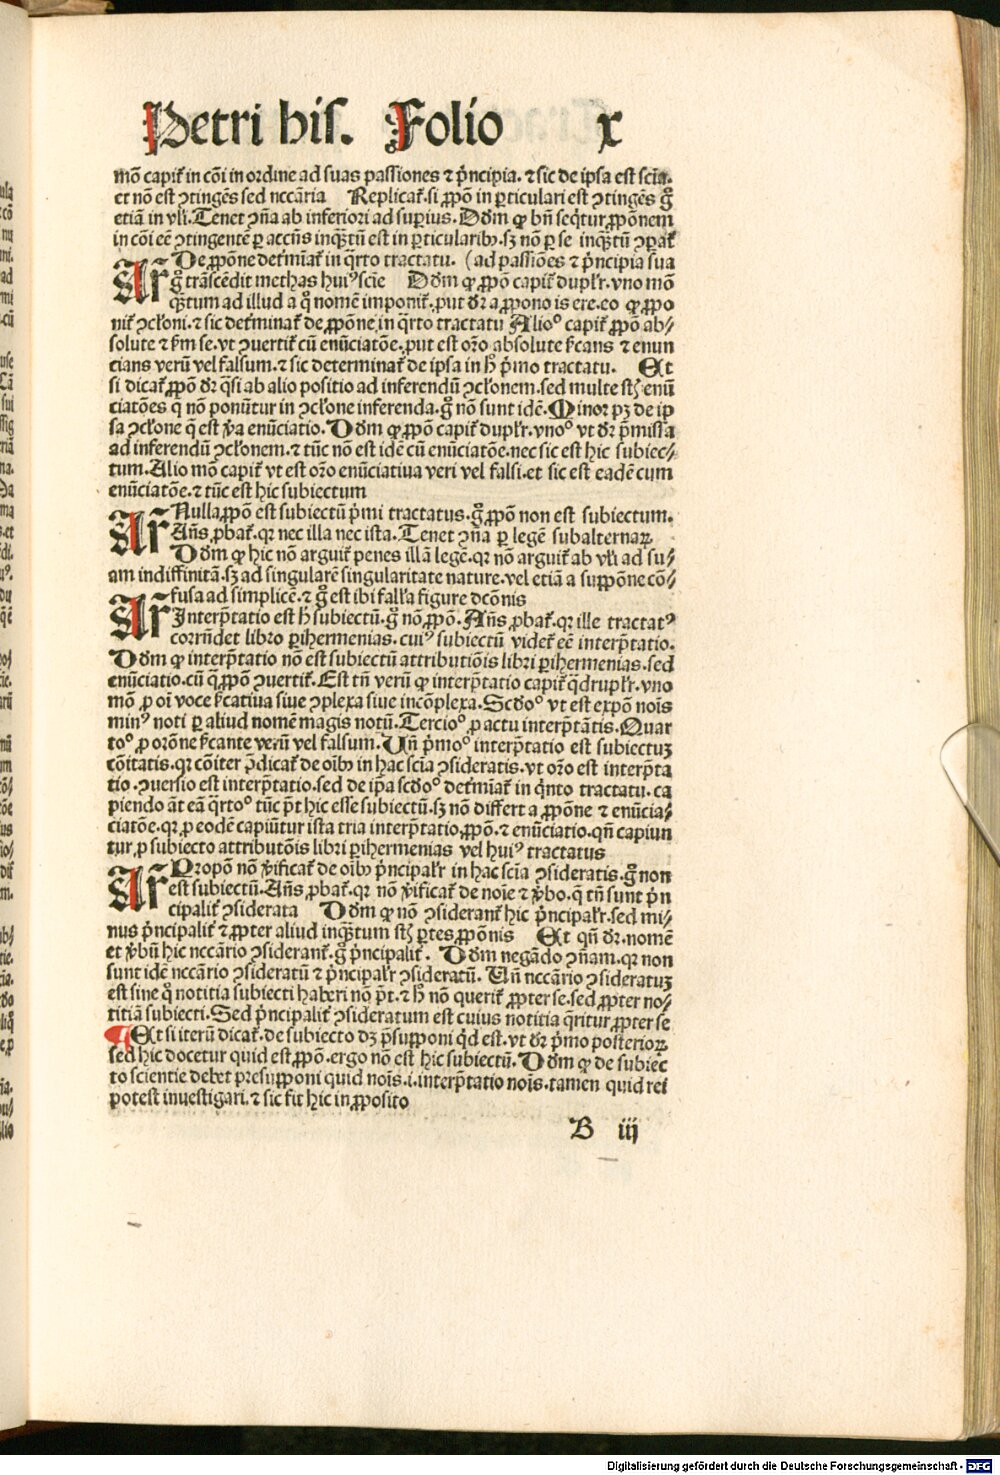 Petri his. Folio x
mō capit̄ in cōi in ordine ad suas passiones ⁊ p̄ncipia. ⁊ sic de ipsa est scīa.
et nō est ꝯtingēs sed nccāria Replicat̄. si ꝓpō in ꝑticulari est ꝯtingēs gͦ
etiā in vl̄i. Tenet ꝯña ab inferiori ad suꝑius. Dōm ꝙ bn̄ seqͥtur ꝓpōnem
in cōi eē ꝯtingentē ꝑ accn̄s inqᷓtū est in ꝑticularibꝰ. sꝫ nō ꝑ se inqᷓtū ꝯꝑat̄
Ar̄ De ꝓpōne det̄mīat̄ in qͣrto tractatu. (ad passiōes ⁊ p̄ncipia sua
gͦ trāscēdit methas huiꝰ scīe Dōm ꝙ ꝓpō capit̄ dupl̄r. vno mō
qᷓtum ad illud a qͦ nomē imponit̄. put dr̄ a ꝓpono is ere. eo ꝙ ꝓpo
nit̄ ꝯcl̄oni. ⁊ sic det̄minat̄ de ꝓpōne in qͣrto tractatu Alioͦ capit̄ ꝓpō ab⸗
solute ⁊ ẜm se. vt ꝯuertit̄ cū enūciatōe. put est oro absolute ẜcans ⁊ enun
cians verū vel falsum. ⁊ sic determinat̄ de ipsa in hͦ pͥmo tractatu. Et
si dicat̄ ꝓpō dr̄ qͣsi ab alio positio ad inferendū ꝯcl̄onem. sed multe st̄ enū
ciatōes q̄ nō ponūtur in ꝯcl̄one inferenda. gͦ nō sunt idē. Minor pꝫ de ip
sa ꝯcl̄one q̄ est v̄a enūciatio. Dōm ꝙ ꝓpō capit̄ dupl̄r. vnoͦ vt dr̄ p̄missa
ad inferendū ꝯcl̄onem. ⁊ tūc nō est idē cū enūciatōe. nec sic est hic subiec⸗
tum. Alio mō capit̄ vt est oro enūciatiua veri vel falsi. et sic est eadē cum
enūciatōe. ⁊ tūc est hic subiectum
Ar̄ Nulla ꝓpō est subiectū pͥmi tractatus. gͦ ꝓpō non est subiectum.
Añs ꝓbat̄. qꝛ nec illa nec ista. Tenet ꝯña ꝑ legē subalternaꝝ
Dōm ꝙ hic nō arguit̄ penes illā legē. qꝛ nō arguit̄ ab vl̄i ad su⸗
am indiffinitā. sꝫ ad singularē singularitate nature. vel etiā a suꝓpōne cō⸗
fusa ad simplicē. ⁊ gͦ est ibi fall̄a figure dcōnis
Ar̄ Interp̄tatio est hͦ subiectū. gͦ nō ꝓpō. Añs ꝓbat̄. qꝛ ille tractatꝰ
corrn̄det libro ꝑihermenias. cuiꝰ subiectū videt̄ eē interp̄tatio.
Dōm ꝙ interp̄tatio nō est subiectū attributiōis libri ꝑihermenias. sed
enūciatio. cū qͣ ꝓpō ꝯuertit̄. Est tn̄ verū ꝙ interp̄tatio capit̄ qͣdrupl̄r. vno
mō ꝓ oī voce ẜcatiua siue ꝯplexa siue incōplexa. Scdoͦ vt est expō noīs
minꝰ noti ꝑ aliud nomē magis notū. Tercioͦ ꝓ actu interp̄tātis. Quar
toͦ ꝓ orōne ẜcante verū vel falsum. Vn̄ pͥmoͦ interp̄tatio est subiectuꝫ
cōitatis. qꝛ cōiter p̄dicat̄ de oībꝰ in hac scīa ꝯsideratis. vt oro est interp̄ta
tio. ꝯuersio est interp̄tatio. sed de ip̄a scdoͦ det̄mīat̄ in qͥnto tractatu. ca
piendo āt eā qͣrtoͦ tūc pͦt hic esse subiectū. sꝫ nō differt a ꝓpōne ⁊ enūcia⸗
ciatōe. qꝛ ꝓ eodē capiūtur ista tria interp̄tatio ꝓpō. ⁊ enūciatio. qn̄ capiun
tur ꝓ subiecto attributōis libri ꝑihermenias vel huiꝰ tractatus
Ar̄ Propō nō v̄ificat̄ de oībꝰ p̄ncipal̄r in hac scīa ꝯsideratis. gͦ non
est subiectū. Añs ꝓbat̄. qꝛ nō v̄ificat̄ de noīe ⁊ v̄bo. q̄ tn̄ sunt p̄n
cipalit̄ ꝯsiderata Dōm ꝙ nō ꝯsiderant̄ hic p̄ncipal̄r. sed mi⸗
nus p̄ncipalit̄ ⁊ ꝓpter aliud inqᷓtum st̄ ꝑtes ꝓpōnis Et qn̄ dr̄. nomē
et v̄bū hic nccārio ꝯsiderant̄. gͦ p̄ncipalit̄. Dōm negādo ꝯñam. qꝛ non
sunt idē nccārio ꝯsideratū ⁊ p̄ncipal̄r ꝯsideratū. Vn̄ nccārio ꝯsideratuꝫ
est sine qͦ notitia subiecti haberi nō pͦt. ⁊ hͦ nō querit̄ ꝓpter se. sed ꝓpter no⸗
titiā subiecti. Sed p̄ncipalit̄ ꝯsideratum est cuius notitia qͥritur ꝓpter se
¶ Et si iterū dicat̄. de subiecto dꝫ p̄supponi qͥd est. vt dr̄ pͥmo posterioꝝ
sed hic docetur quid est ꝓpō. ergo nō est hic subiectū. Dōm ꝙ de subiec
to scientie debet presupponi quid noīs. i. interp̄tatio noīs. tamen quid rei
potest inuestigari. ⁊ sic fit hic in ꝓposito
B iij
Digitalisierung gefördert durch die Deutsche Forschungsgemeinschaft - DFG